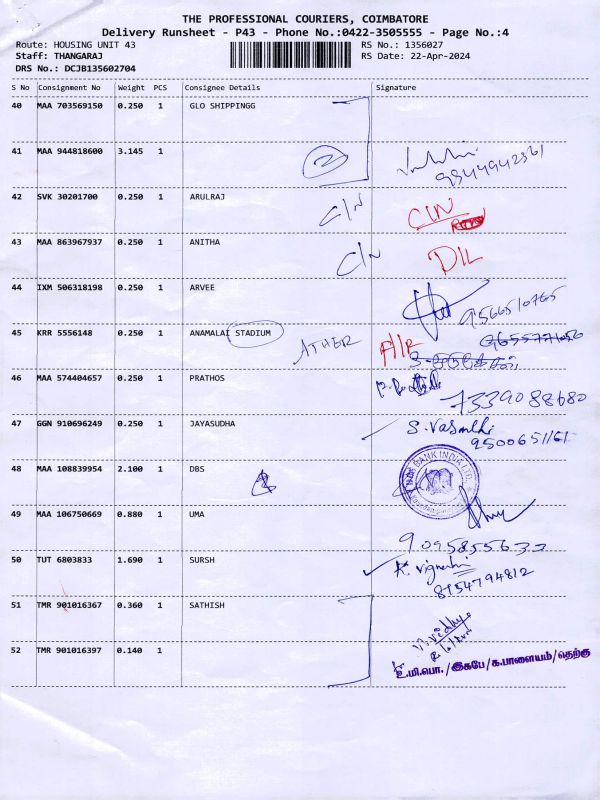 THE PROFESSIONAL COURIERS, COIMBATORE
Delivery Runsheet - P43 - Phone No.:0422-3505555 - Page No.:4
Route: HOUSING UNIT 43 RS No.: 1356027
Staff: THANGARAJ RS Date: 22-Apr-2024
DRS No.: DCJB135602704
S No Consignment No Weight PCS Consignee Details Signature
40 MAA 703569150 0.250 1 GLO SHIPPINGG
41 MAA 944818600 3.145 1 2
9344942361
42 SVK 30201700 0.250 1 ARULRAJ C/N C/N
43 MAA 863967937 0.250 1 ANITHA C/N D/L
44 IXM 506318198 0.250 1 ARVEE
9566510765
45 KRR 5556148 0.250 1 ANAMALAI STADIUM ATHER A/R
46 MAA 574404657 0.250 1 PRATHOS
7339088680
47 GGN 910696249 0.250 1 JAYASUDHA S. Vasanthi
9500651161
48 MAA 108839954 2.100 1 DBS BANK INDIA LTD.
49 MAA 106750669 0.880 1 UMA
9095855633
50 TUT 6803833 1.690 1 SURSH K. Vignesh
8754794812
51 TMR 901016367 0.360 1 SATHISH
52 TMR 901016397 0.140 1
உ.மி.பொ./இகபே/க.பாளையம்/தெற்கு